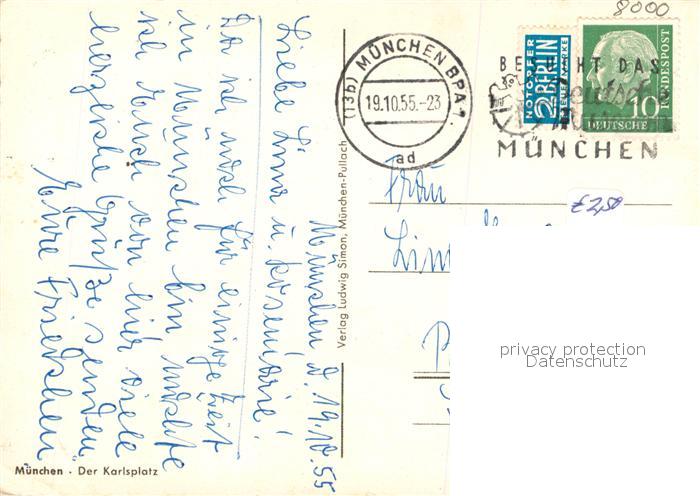 8000
NOTOPFER
2 BERLIN
STEUERMARKE
DEUTSCHE
BUNDESPOST
10
(13b) MÜNCHEN BPA 1
19.10.55.-23
ad
BESUCHT DAS
Deutsche
MÜNCHEN
Frau
£2,50
privacy protection
Datenschutz
Verlag Ludwig Simon, München-Pullach
München d. 19.10.55
Liebe Lina u. Rosemarie!
Da ich noch für einige Zeit
in München bin möchte
ich Euch von hier viele
herzliche Grüße senden
Eure Friedchen
München · Der Karlsplatz